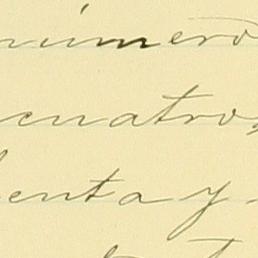 número
cuatro,
enta y